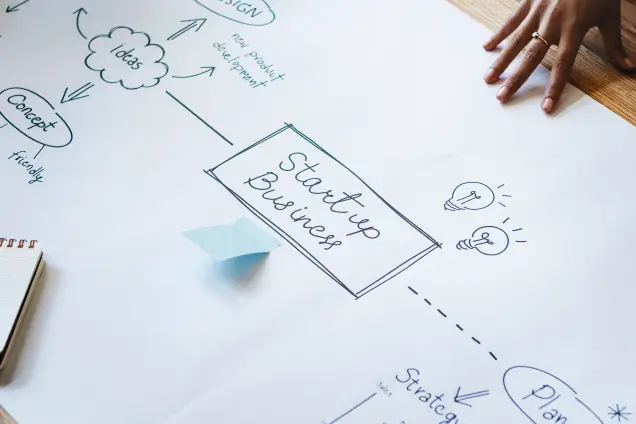 Ideas
new product
development
Concept
friendly
Start up
Business
Strategy
sales
Plan